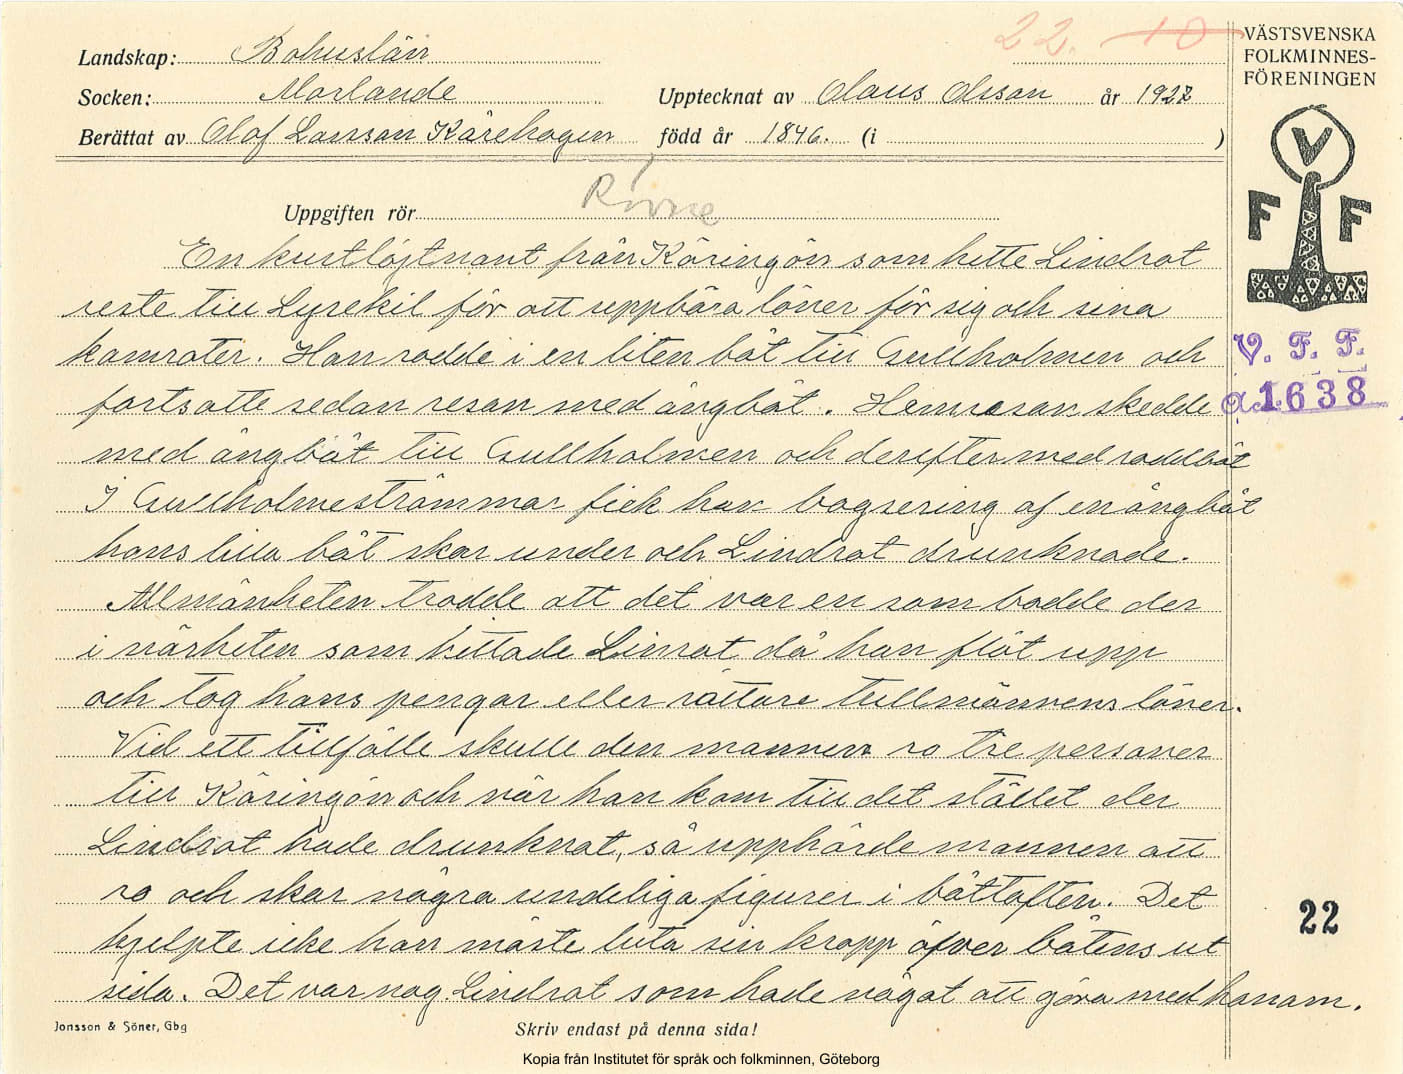 22. 10
Landskap: Bohuslän
Socken: Morlanda
Upptecknat av Olaus Olsson år 1927
Berättat av Olof Larsson Kårehogen född år 1846. (i )
VÄSTSVENSKA
FOLKMINNES-
FÖRENINGEN
V
F F
Uppgiften rör
En kustlöjtnant från Käringön som hette Lindrot
reste till Lysekil för att uppbära löner för sig och sina
kamrater. Han rodde i en liten båt till Gullholmen och
fortsatte sedan resan med ångbåt. Hemresan skedde
med ångbåt till Gullholmen och derefter med roddbåt
I Gullholmeströmmar fick han bogsering af en ångbåt
hans lilla båt skar under och Lindrot drunknade.
Allmänheten trodde att det var en som bodde der
i närheten som hittade Linrot då han flöt upp
och tog hans pengar eller rättare tullmännens löner.
Vid ett tillfälle skulle den mannen ro tre personer
till Käringön och när han kom till det stället der
Lindrot hade drunknat, så upphörde mannen att
ro och skar några undeliga figurer i båttoften. Det
hjelpte icke han måste luta sin kropp öfver båtens ut
sida. Det var nog Lindrot som hade något att göra med honom.
V. F. F.
Acc. 1638
22
Jonsson & Söner, Gbg
Skriv endast på denna sida!
Kopia från Institutet för språk och folkminnen, Göteborg